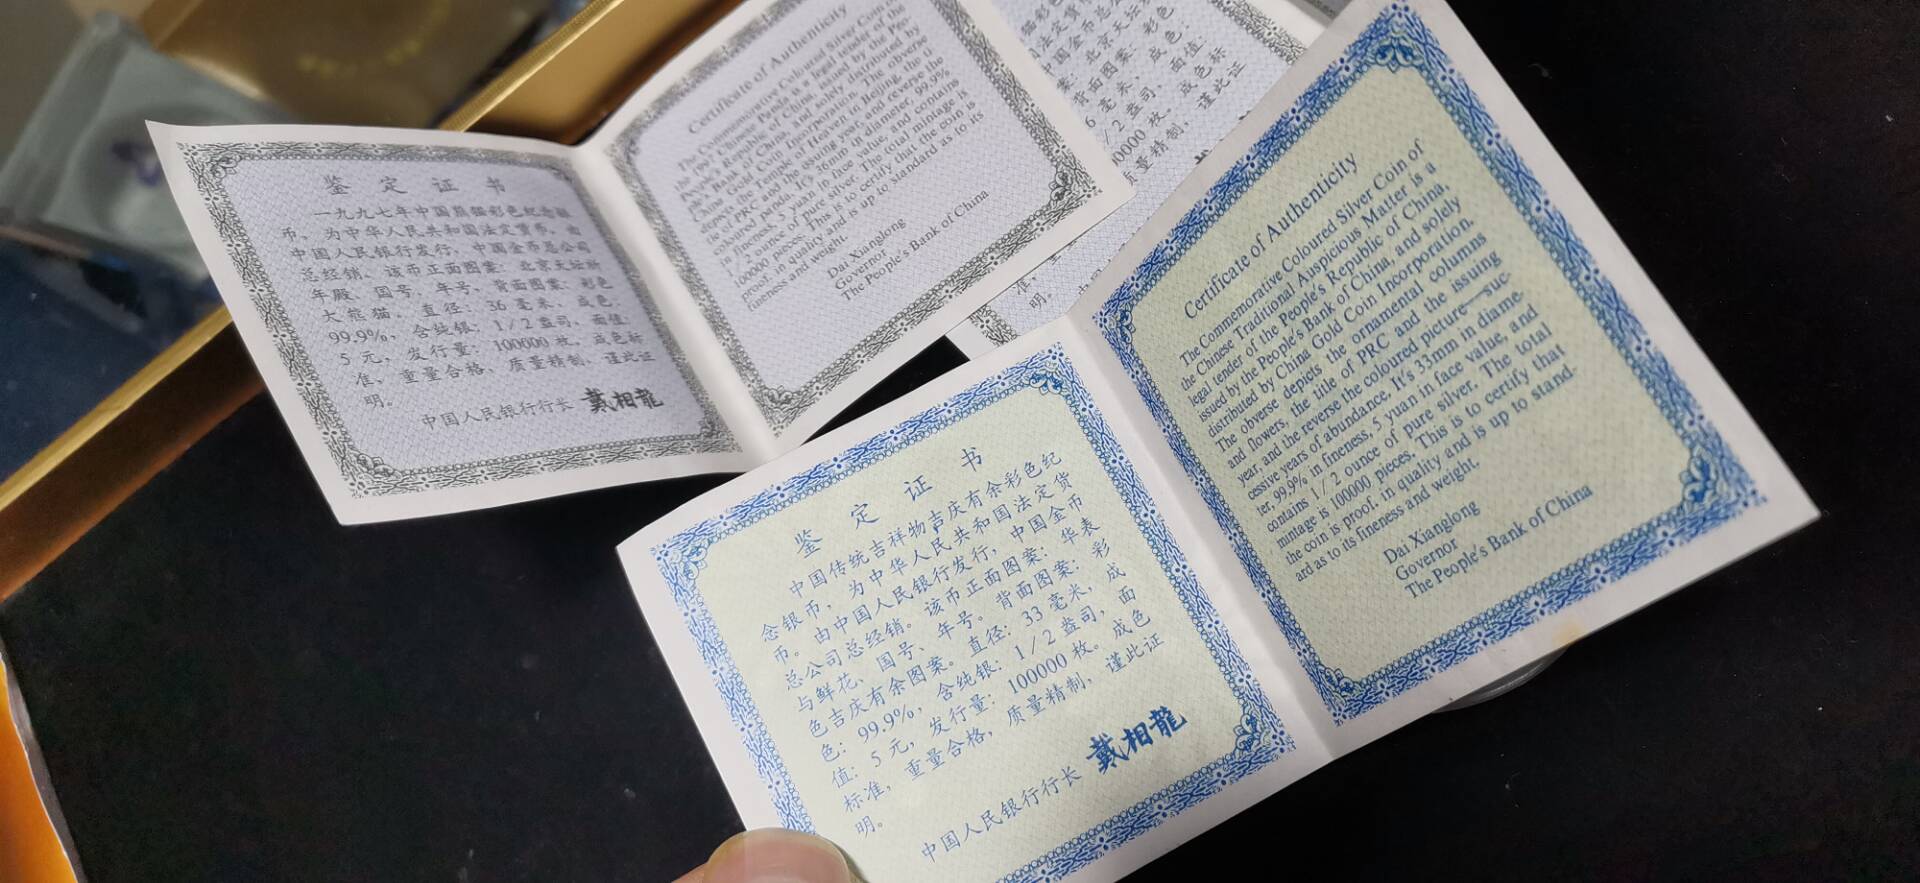 鉴定证书
一九九七年中国熊猫彩色纪念银
币，为中华人民共和国法定货币。由
中国人民银行发行，中国金币总公司
总经销。该币正面图案：北京天坛祈
年殿、国号、年号，背面图案：彩色
大熊猫。直径：36毫米，成色：
99.9%，含纯银：1/2盎司，面值：
5元，发行量：100000枚。成色标
准，重量合格，质量精制，谨此证
明。
中国人民银行行长 戴相龍
Certificate of Authenticity
The Commemorative Coloured Silver Coin of
the 1997 Chinese Panda is a legal tender of the
People's Republic of China, issued by the Peo-
ple's Bank of China, and solely distributed by
China Gold Coin Incorporation. The obverse
depicts the Temple of Heaven in Beijing, the ti-
tle of PRC and the issuing year, and reverse the
coloured panda. It's 36mm in diameter, 99.9%
in fineness, 5 yuan in face value, and contains
1/2 ounce of pure silver. The total mintage is
100000 pieces. This is to certify that the coin is
proof, in quality and is up to standard as to its
fineness and weight.
Dai Xianglong
Governor
The People's Bank of China
鉴定证书
中国传统吉祥物吉庆有余彩色纪
念银币，为中华人民共和国法定货
币。由中国人民银行发行，中国金币
总公司总经销。该币正面图案：华表
与鲜花、国号、年号。背面图案：彩
色吉庆有余图案。直径：33毫米，成
色：99.9%，含纯银：1/2盎司，面
值：5元，发行量：100000枚。成色
标准，重量合格，质量精制，谨此证
明。
中国人民银行行长 戴相龍
Certificate of Authenticity
The Commemorative Coloured Silver Coin of
the Chinese Traditional Auspicious Matter is a
legal tender of the People's Republic of China,
issued by the People's Bank of China, and solely
distributed by China Gold Coin Incorporation.
The obverse depicts the ornamental columns
and flowers, the title of PRC and the issuing
year, and the reverse the coloured picture—suc-
cessive years of abundance. It's 33mm in diame-
ter, 99.9% in fineness, 5 yuan in face value, and
contains 1/2 ounce of pure silver. The total
mintage is 100000 pieces. This is to certify that
the coin is proof, in quality and is up to stand-
ard as to its fineness and weight.
Dai Xianglong
Governor
The People's Bank of China